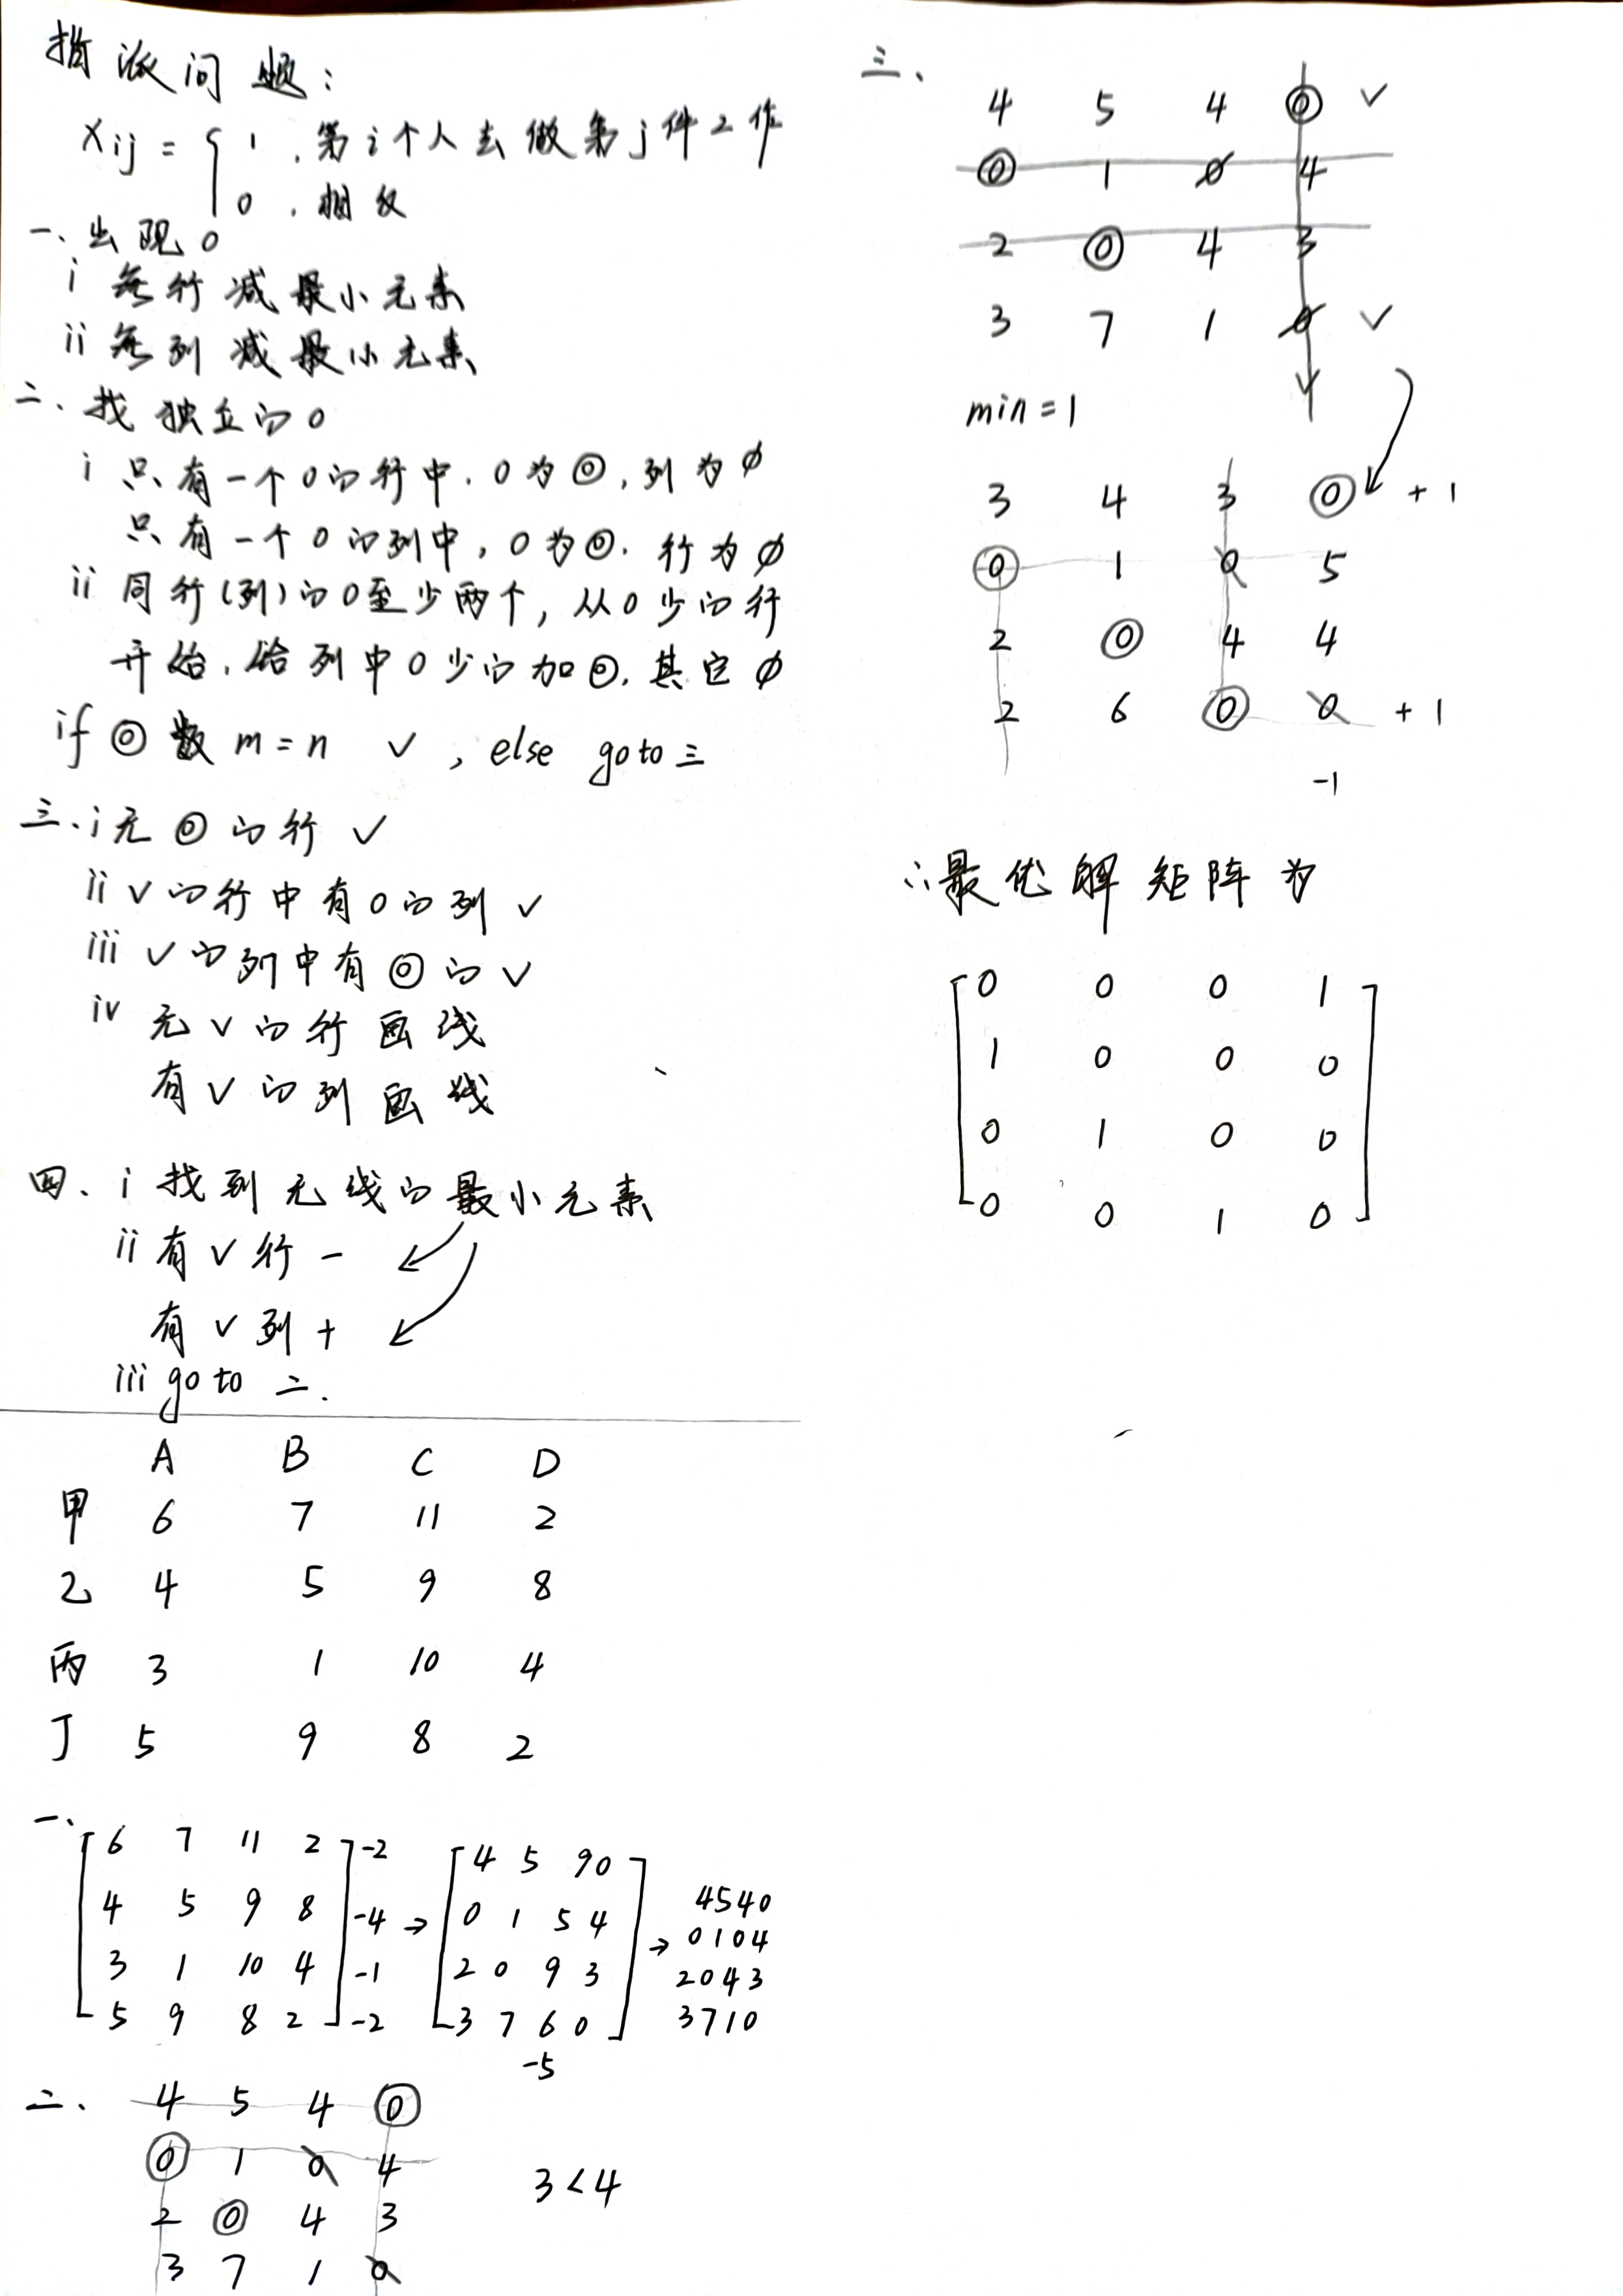 指派问题：
xij = { 1 , 第i个人去做第j件工作
0 , 相反
一、出现0
i 每行减最小元素
ii 每列减最小元素
二、找独立的0
i 只有一个0的行中, 0为◎, 列为∅
只有一个0的列中, 0为◎. 行为∅
ii 同行(列)的0至少两个, 从0少的行
开始, 给列中0少的加◎, 其它∅
if ◎数 m = n ✓ , else goto 三
三、i 无◎的行 ✓
ii ✓的行中有0的列 ✓
iii ✓的列中有◎的 ✓
iv 无✓的行画线
有✓的列画线
四、i 找到无线的最小元素
ii 有✓行 −
有✓列 +
iii goto 二.
A B C D
甲 6 7 11 2
乙 4 5 9 8
丙 3 1 10 4
丁 5 9 8 2
一、
[ 6 7 11 2 ] -2 [ 4 5 9 0 ] 4 5 4 0
4 5 9 8 -4 → 0 1 5 4 → 0 1 0 4
3 1 10 4 -1 2 0 9 3 2 0 4 3
5 9 8 2 -2 3 7 6 0 3 7 1 0
-5
二、 4 5 4 ⓪
⓪ 1 0 4 3 < 4
2 ⓪ 4 3
3 7 1 0
三、
4 5 4 ⓪ ✓
⓪ 1 ∅ 4
2 ⓪ 4 3
3 7 1 ∅ ✓
✓
min = 1
3 4 3 ⓪ + 1
⓪ 1 0 5
2 ⓪ 4 4
2 6 ⓪ 0 + 1
-1
∴最优解矩阵为
[ 0 0 0 1 ]
1 0 0 0
0 1 0 0
0 0 1 0